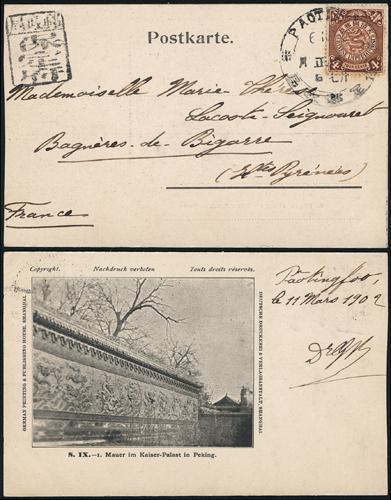 Postkarte.
PAOTI
4
Mademoiselle Marie-Thérèse
Lacoste-Seignouret
Bagnères-de-Bigorre
(Htes Pyrénées)
France
Copyright. Nachdruck verboten Touts droits réservés.
GERMAN PRINTING & PUBLISHING HOUSE, SHANGHAI
DEUTSCHE DRUCKEREI & VERLAGSANSTALT, SHANGHAI
S. IX.—1. Mauer im Kaiser-Palast in Peking.
Paotingfou,
le 11 Mars 1902